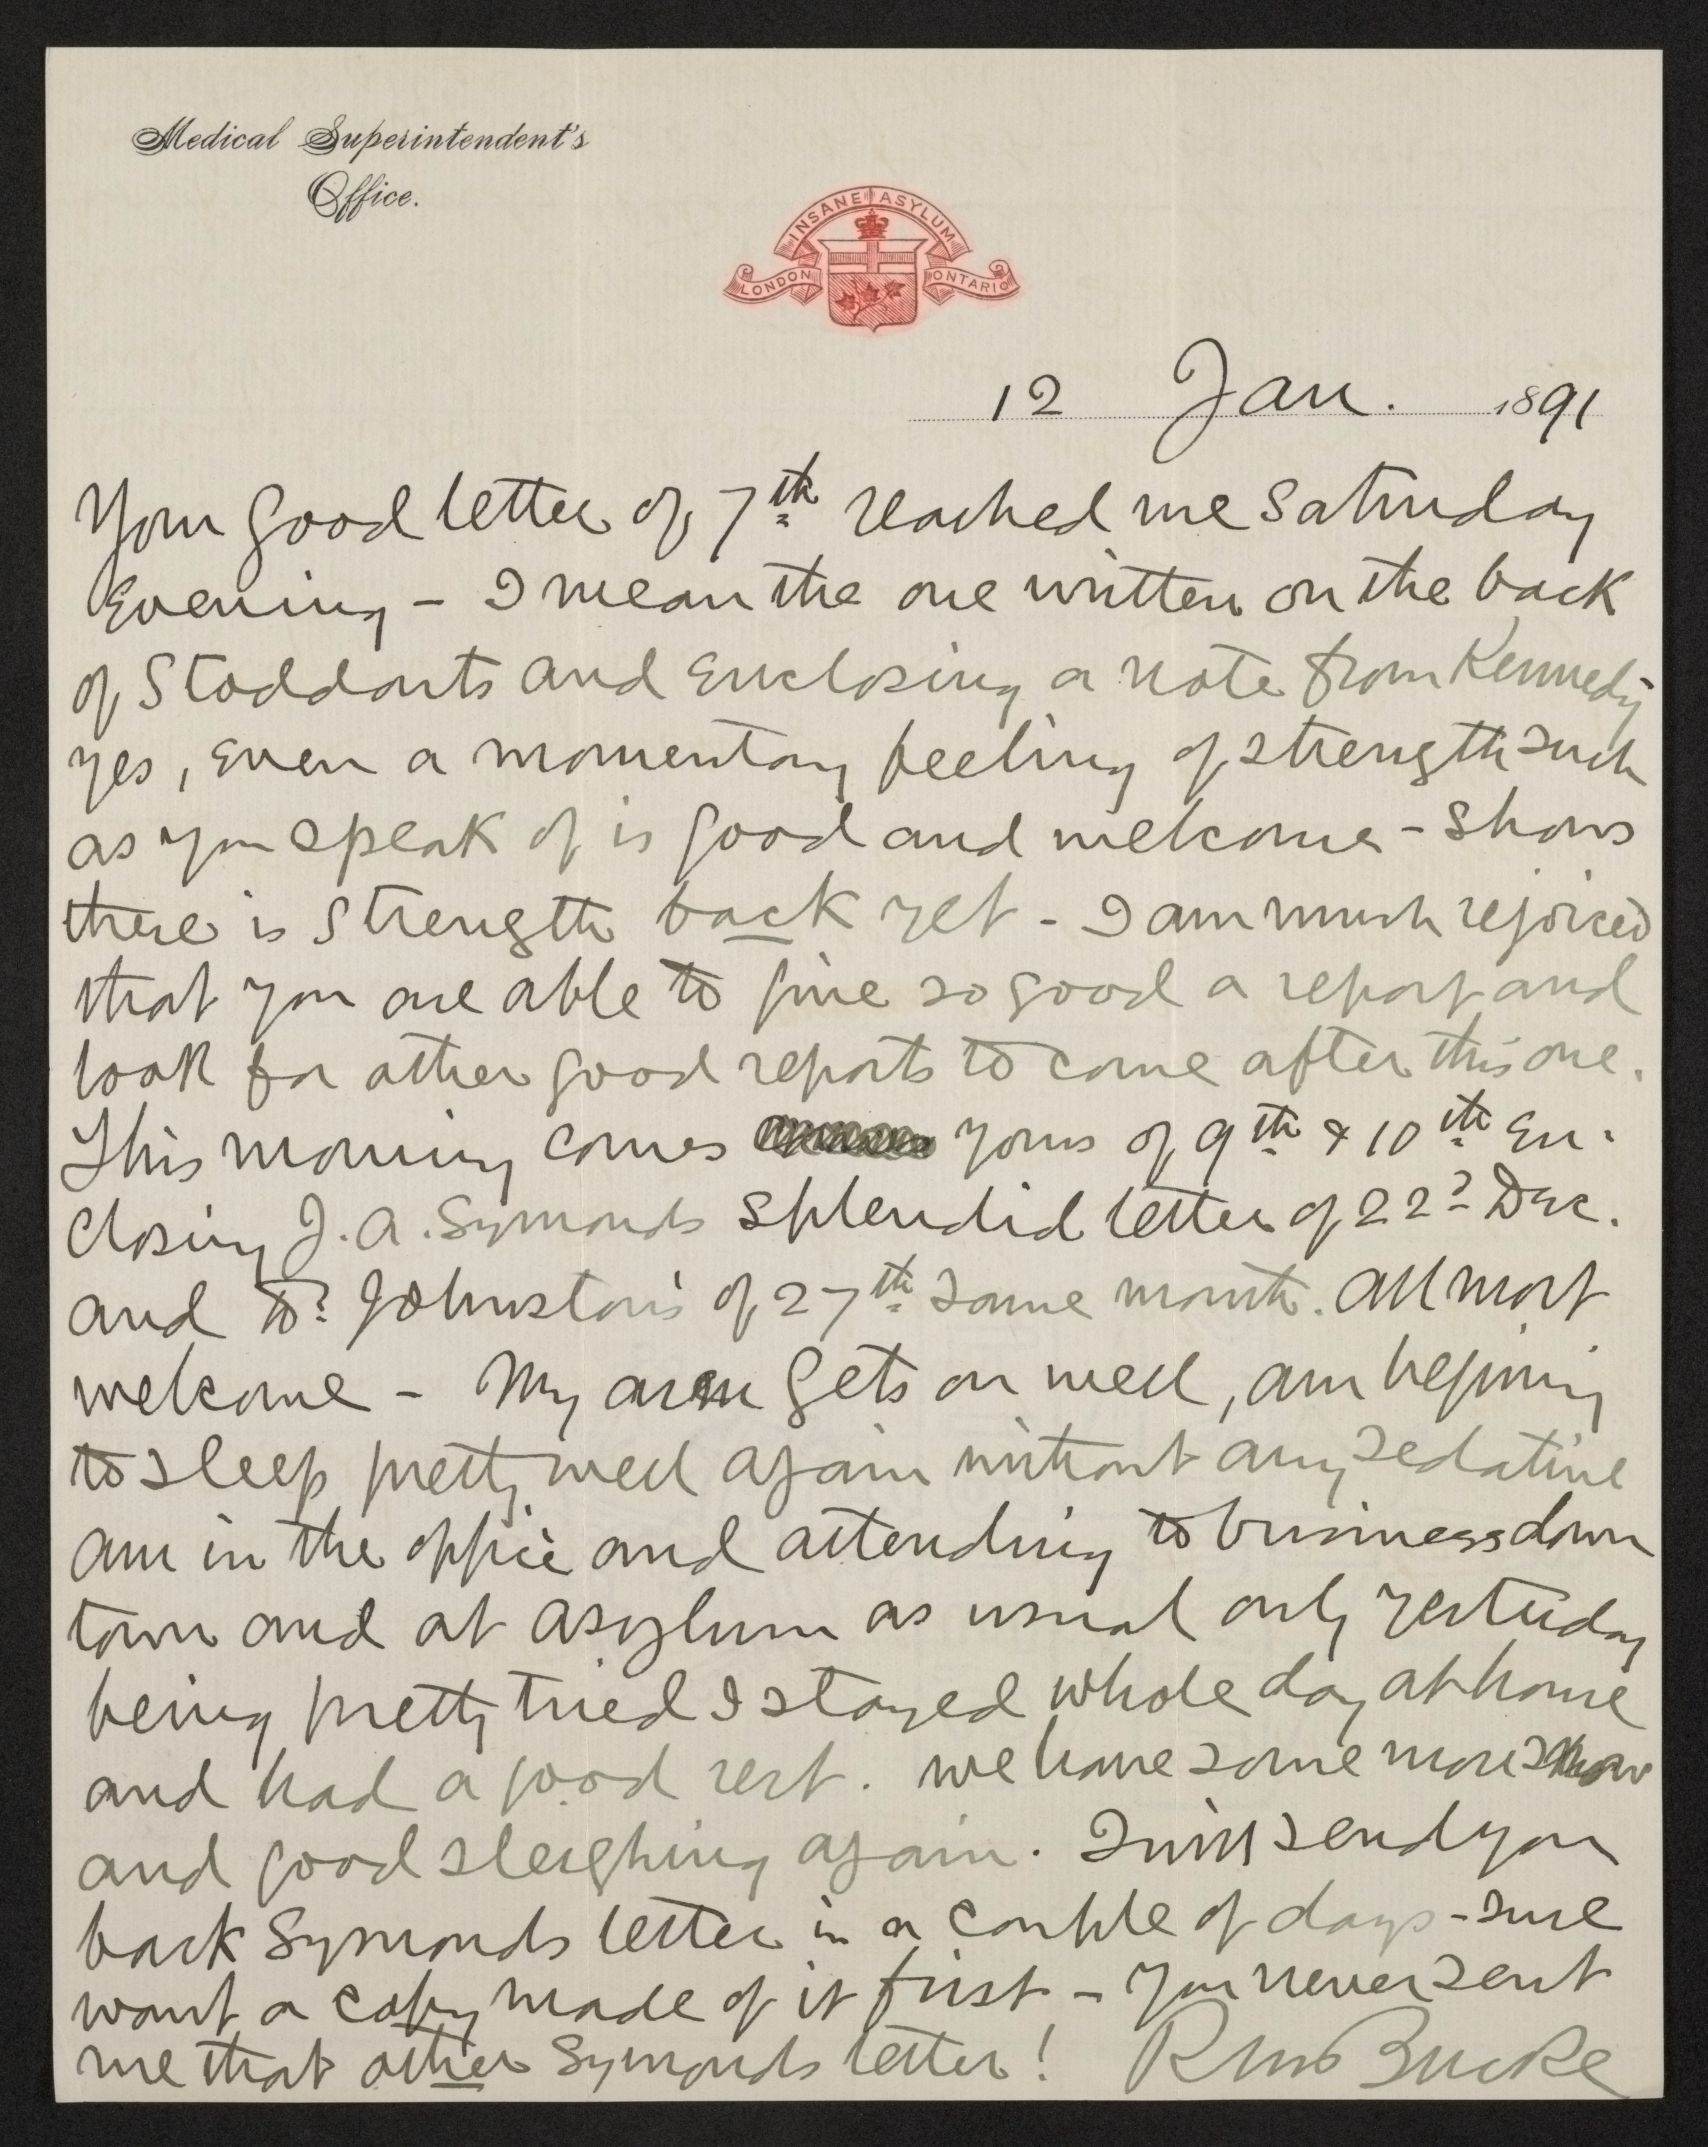 Medical Superintendent's
Office.
INSANE ASYLUM
LONDON ONTARIO
12 Jan. 1891
Your good letter of 7th reached me Saturday
Evening – I mean the one written on the back
of Stoddarts and enclosing a note from Kennedy
yes, even a momentary feeling of strength such
as you speak of is good and welcome – shows
there is strength back yet – I am much rejoiced
that you are able to give so good a report and
look for other good reports to come after this one.
This morning comes yours of 9th & 10th en-
closing J.A. Symonds splendid letter of 22d Dec.
and Dr Johnston's of 27th same month. All most
welcome – My arm gets on well, am begining
to sleep pretty well again without any sedative
am in the office and attending to business down
town and at asylum as usual only yesterday
being pretty tired I stayed whole day at home
and had a good rest. We have some more snow
and good sleighing again. I will send you
back Symonds letter in a couple of days – sure
want a copy made of it first – You never sent
me that other Symonds letter! R M Bucke